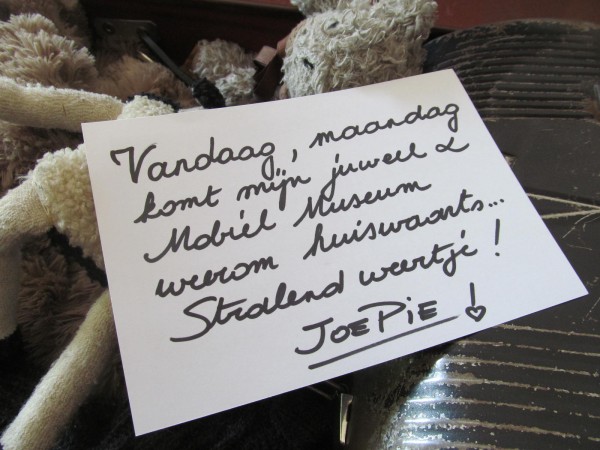 Vandaag, maandag
komt mijn juweel &
Mobiél Museum
weerom huiswaarts...
Stralend weertje!
JOEPIE!